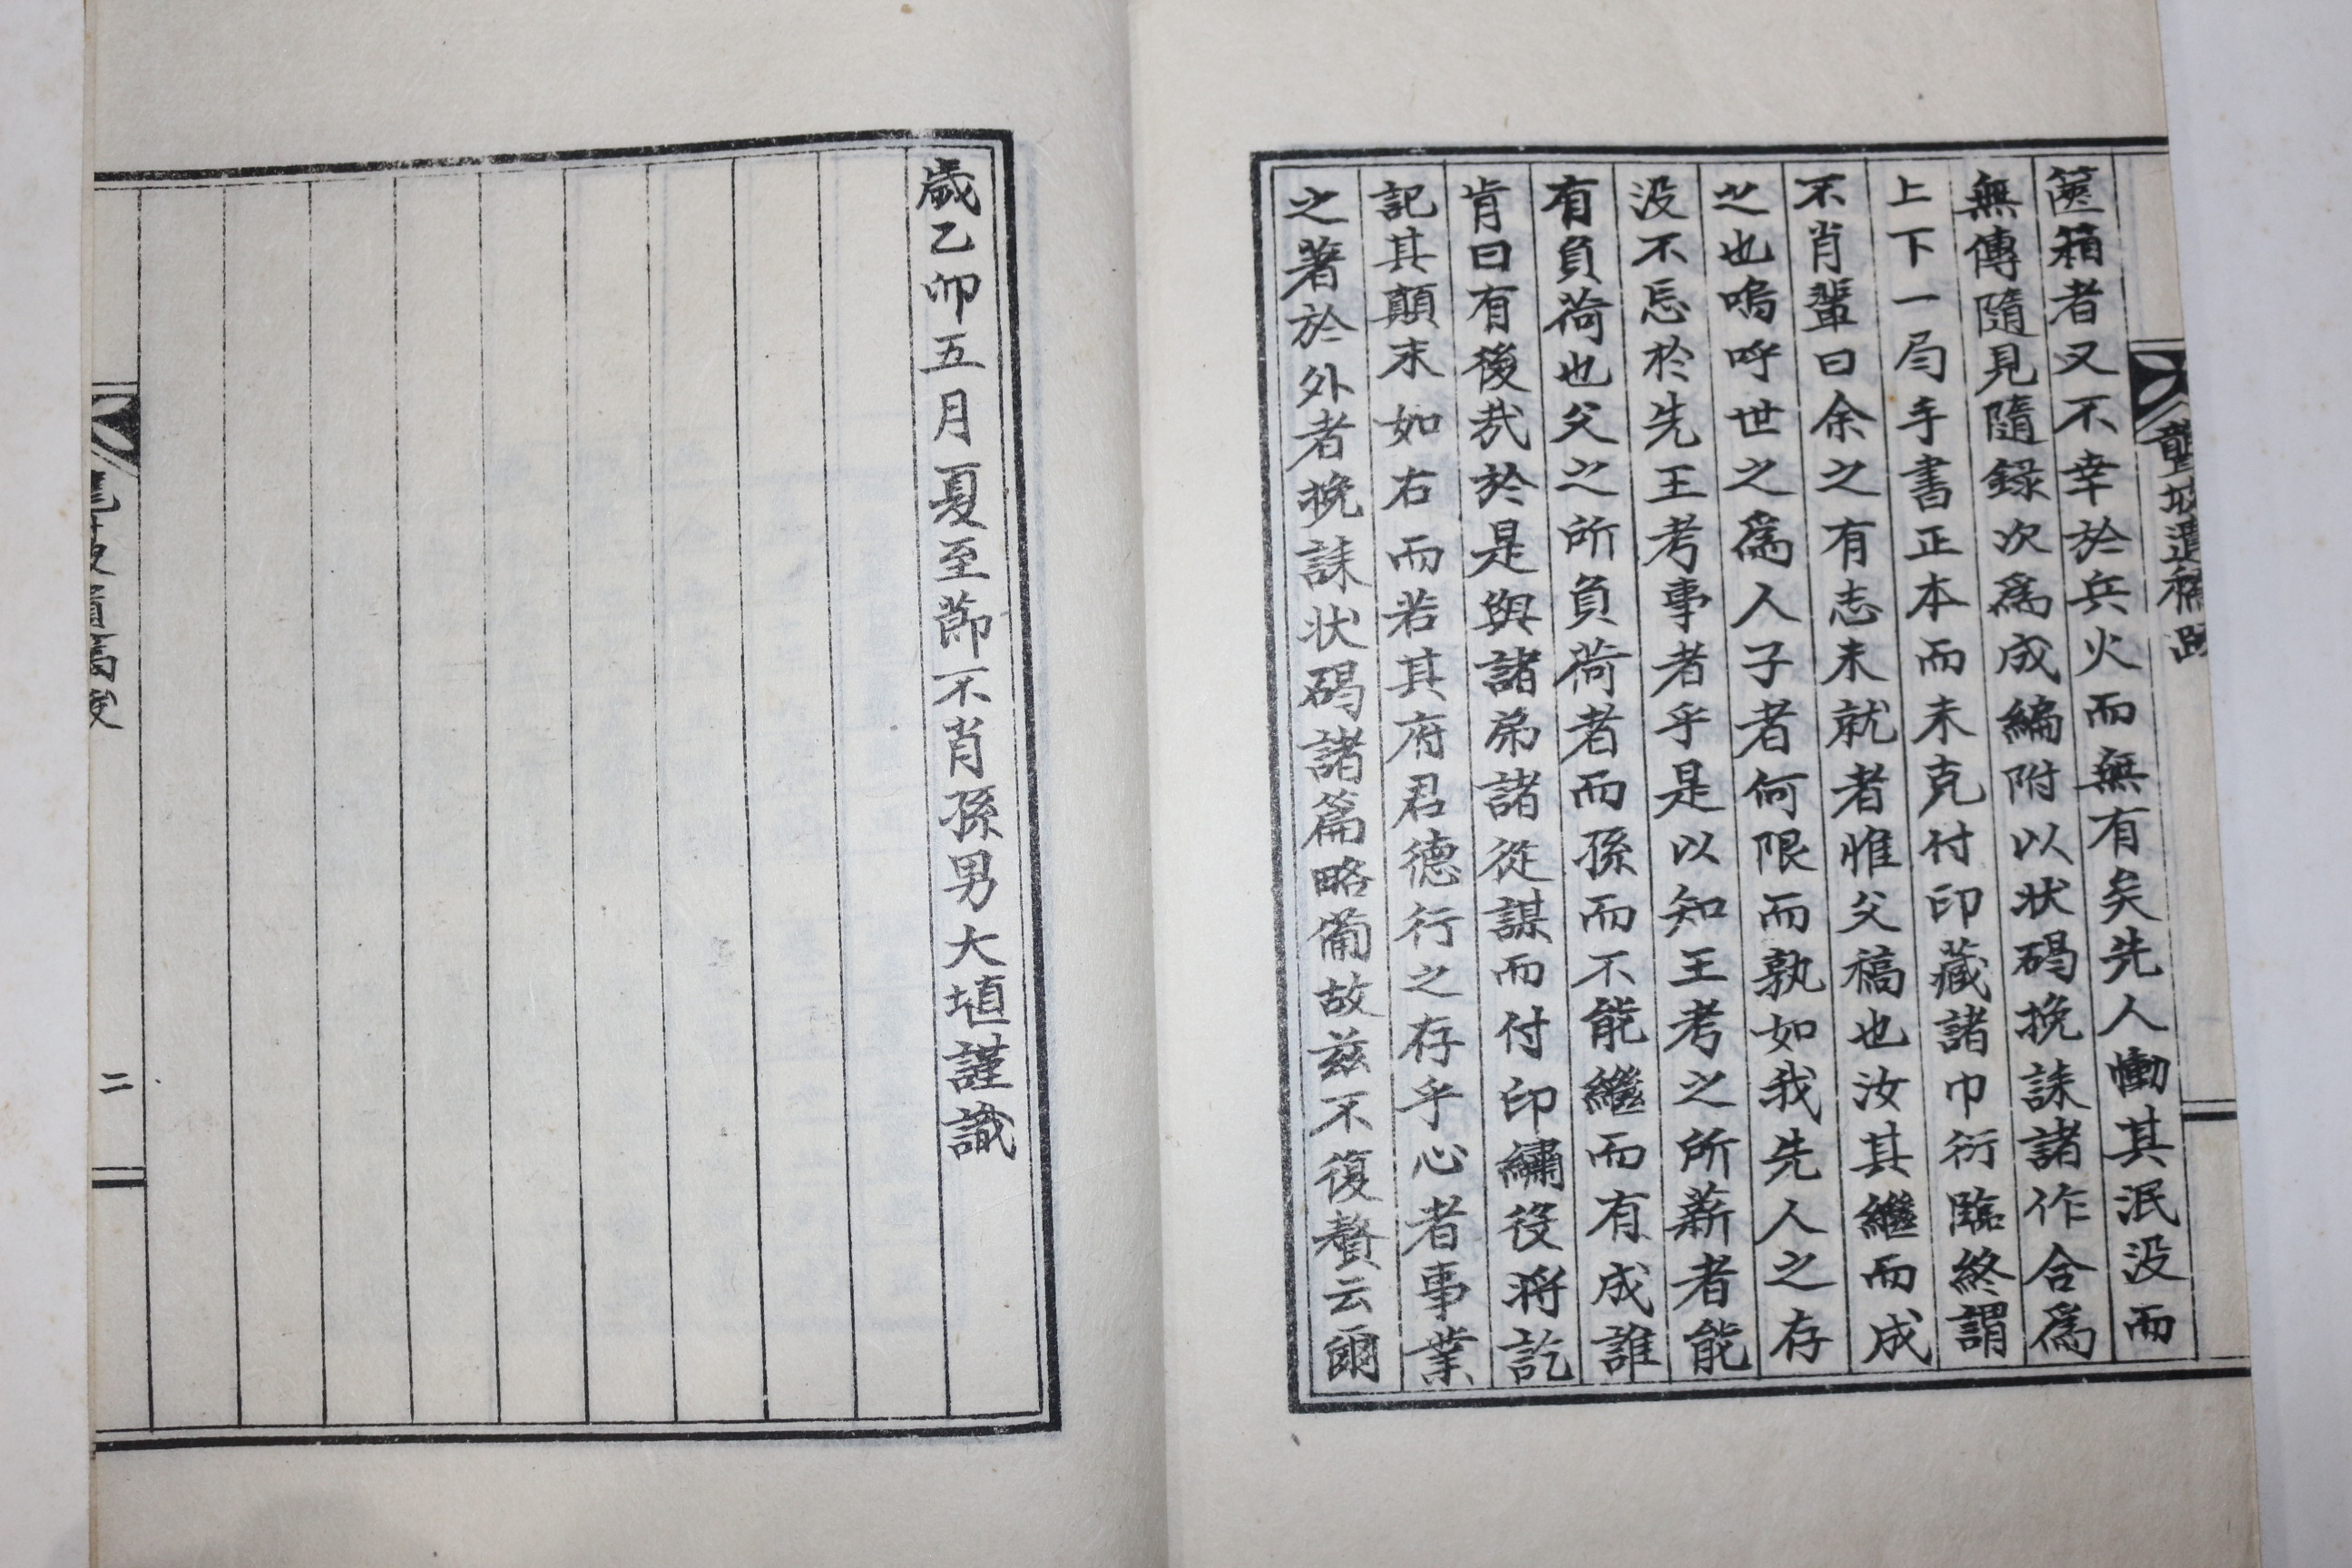 篋箱者又不幸於兵火而無有矣先人慟其泯没而
無傳隨見隨録次爲成編附以状碣挽誄諸作合爲
上下一局手書正本而未克付印藏諸巾衍臨終謂
不肖輩曰余之有志未就者惟父稿也汝其繼而成
之也嗚呼世之爲人子者何限而孰如我先人之存
没不忘於先王考事者乎是以知王考之所薪者能
有負荷也父之所負荷者而孫而不能繼而有成誰
肯曰有後哉於是與諸弟諸從謀而付印繡役將訖
記其顛末如右而若其府君德行之存乎心者事業
之著於外者挽誄状碣諸篇略葡故兹不復贅云爾
歲乙卯五月夏至節不肖孫男大埴謹識
二